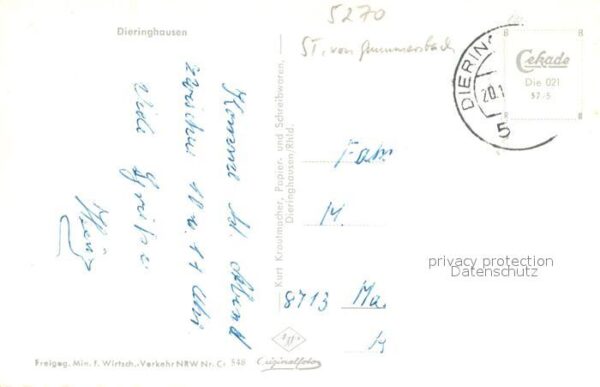 Dieringhausen
5270
ST. von Gummersbach
DIERING
20.1
5
Cekade
Die 021
57/5
Komme Sa. Abend
zwischen 10 u. 11 Uhr.
Viele Grüße
Heinz
Kurt Krautmacher, Papier- und Schreibwaren,
Dieringhausen/Rhld.
Fam
M.
8713 Ma
privacy protection
Datenschutz
Agfa
Originalfoto
Freigeg. Min. f. Wirtsch. u. Verkehr NRW Nr. Cr 548